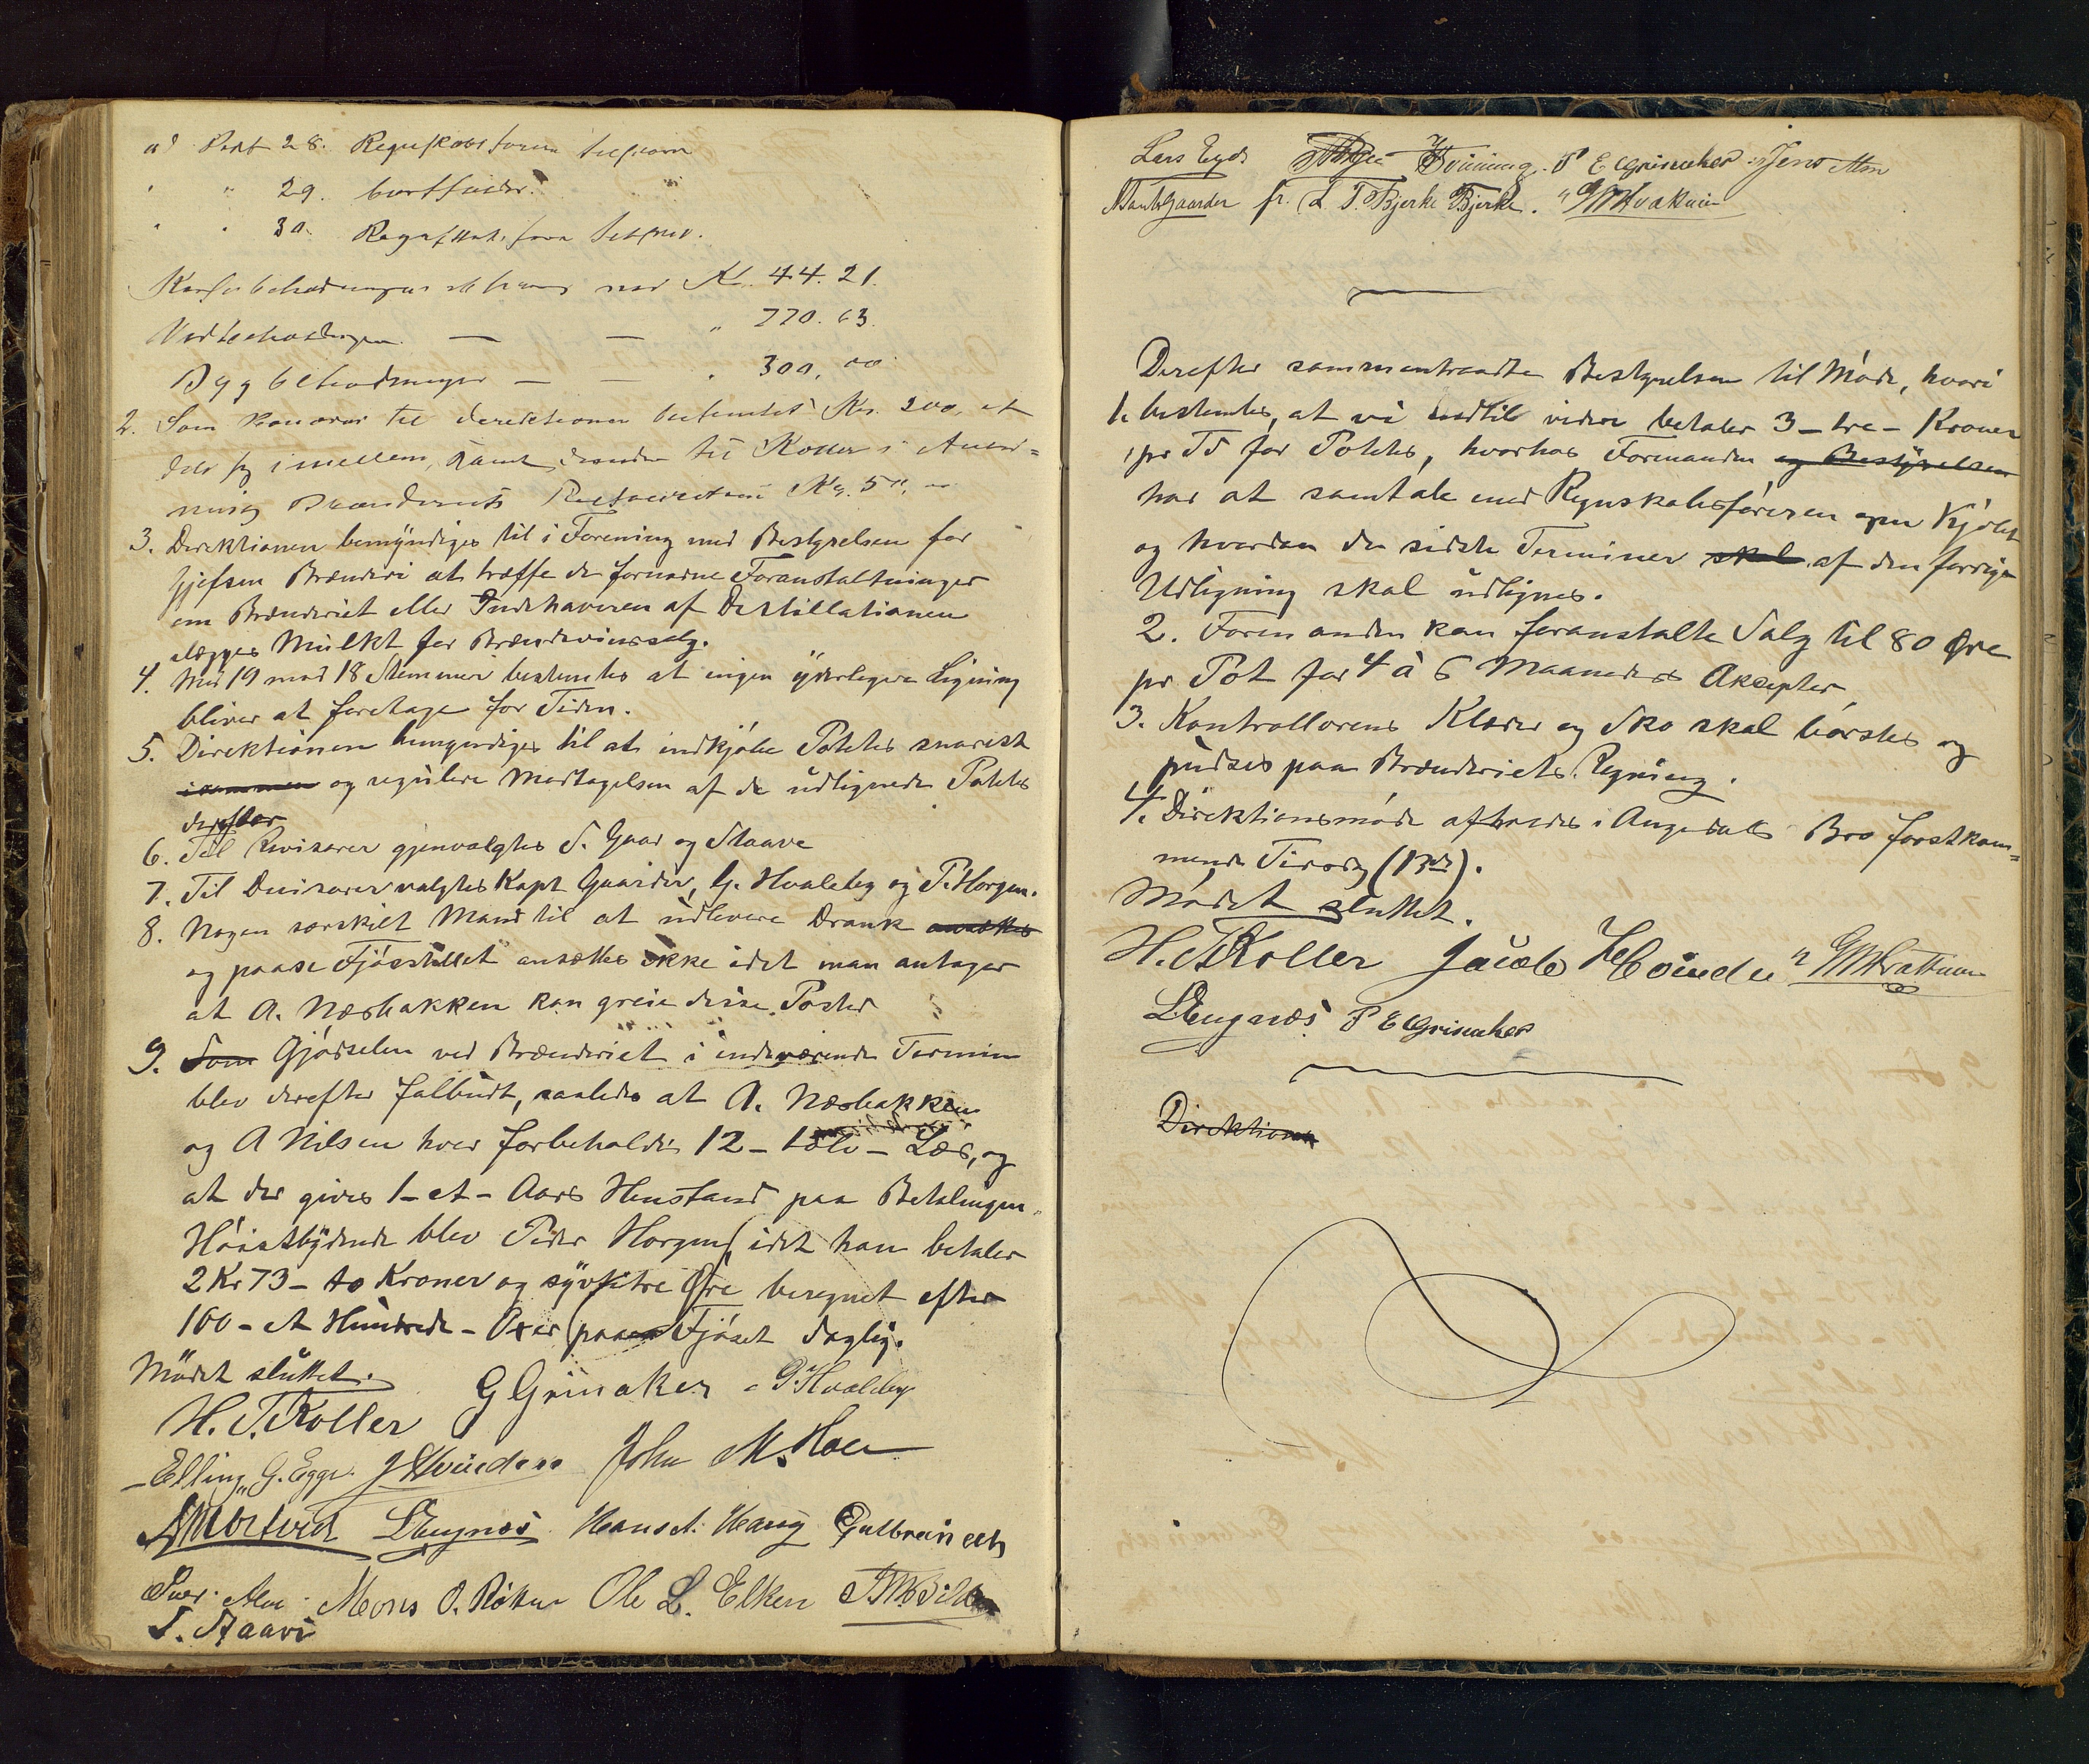 ad Post 28. Regnskabsføren tilskrives
" " 29. bortfalder.
" " 30. Regnskabsføren
Kassabeholdningen med Kr. 44.21.
Vedbeholdningen — — " 770.63.
Bygbeholdningen — — " 300,00
2. Som Honorar til Direktionen bestemtes Kr. 200, at
dele sig imellem, samt desuden til Koller i Anled=
ning Brænderiets Kr. 50,00
3. Direktionen bemyndiges til i Forening med Bestyrelsen for
Gjefsen Brænderi at træffe de fornødne Foranstaltninger
om Brænderiet eller Indehaveren af Destillationen
ilægges Mulkt for Brændevinssalg.
4. Med 19 mod 18 Stemmer bestemtes at ingen yderligere Ligning
bliver at foretage for Tiden.
5. Direktionen bemyndiges til at indkjøbe Potetes snarest
og regulere Modtagelsen af de udlignede Potetes
derefter
6. Til Revisorer gjenvalgtes S. Gaar og Staave
7. Til Decisorer valgtes Kapt Gaarder, G. Hvaleby og P. Horgen.
8. Nogen særskilt Mand til at udlevere Drank ansættes
og passe Fjøsstellet ansættes ikke idet man antager
at A. Næsbakken kan greie disse Poster
9. Som Gjødselen ved Brænderiet i indeværende Termin
blev derefter falbudt, saaledes at A. Næsbakken
og A Nilsen hver forbeholdes 12 - tolv - Læs, og
at der gives 1 - et - Aars Henstand paa Betalingen.
Høistbydende blev Peder Horgen, idet han betaler
2 Kr 73 - to Kroner og syvtitre Øre beregnet efter
100 - et Hundrede - Oxer paa Fjøset daglig.
Mødet sluttet.
H. T. Koller G Grinaker G. Hvaleby
Elling G. Egge. J Hvinden John M. Hoen
L Engnæs Hans A. Haug Gulbran
Iver Alm Mons O. Røken Ole L. Elken
T. Staave
Lars Egge P E Grinaker Jens Alm
fr. L. T. Bjerke Bjerke.
Derefter sammentraadte Bestyrelsen til Møde, hvori
1. bestemtes, at vi indtil videre betaler 3 - tre - Kroner
pr Td for Potetes, hvorhos Formanden og Bestyrelsen
har at samtale med Regnskabsføreren om Kjøbet
og hvordan de sidste Terminer skal af den forrige
Udligning skal udlignes.
2. Formanden kan foranstalte Salg til 80 Øre
pr Pot for 4 à 6 Maaneders Aksepter
3. Kontrollørens Klæder og Sko skal børstes og
pudses paa Brænderiets Regning.
4. Direktionsmøde afholdes i Augedals Bro førstkom=
mende Tirsdag (13de).
Mødet sluttet.
H. T. Koller Jacob Hvinden
L Engnæs P E Grinaker
Direktionen